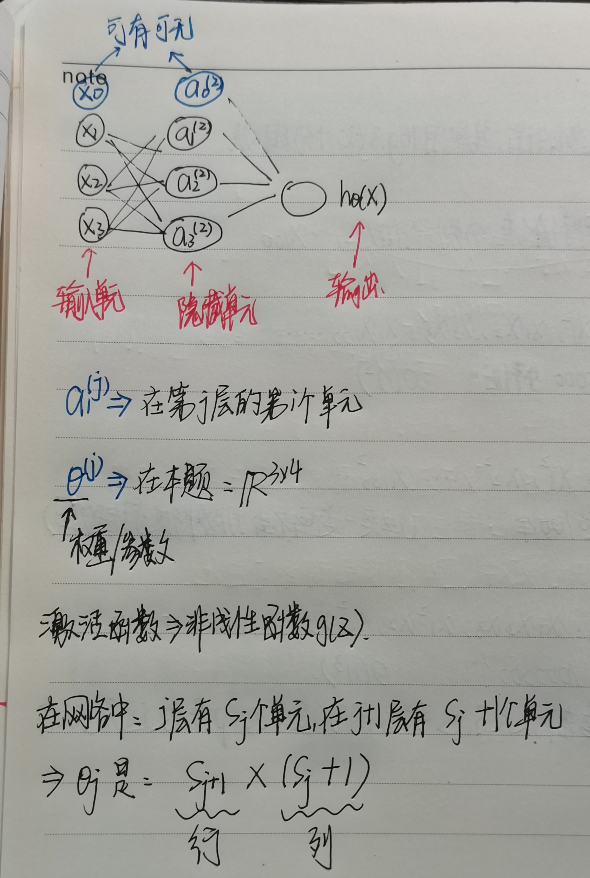 可有可无
note
x₀ a₀⁽²⁾
x₁ a₁⁽²⁾
x₂ a₂⁽²⁾
x₃ a₃⁽²⁾ hθ(x)
输入单元 隐藏单元 输出
aᵢ⁽ʲ⁾ ⇒ 在第j层的第i个单元
θ⁽ʲ⁾ ⇒ 在本题 = ℝ³ˣ⁴
权重/参数
激活函数 ⇒ 非线性函数g(z).
在网络中: j层有 Sj个单元,在j+1层有 Sj +1个单元
⇒ θj 是: Sj+1 × (Sj + 1)
行 列